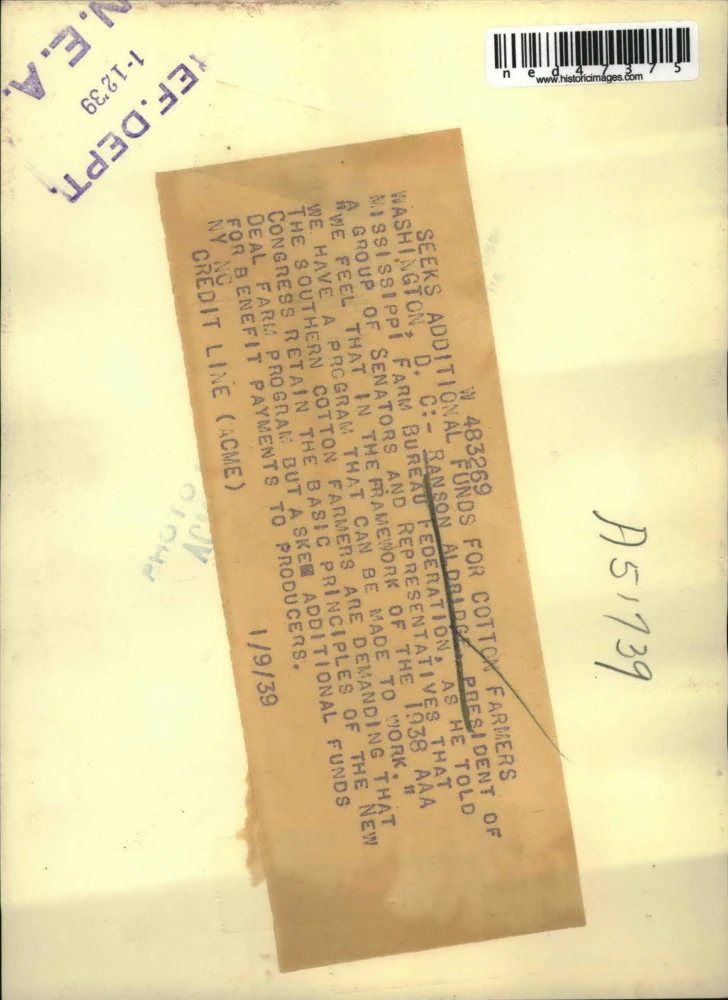 N.E.A.
1-12 39
REF. DEPT.
ned47375
www.historicimages.com
W 483269
SEEKS ADDITIONAL FUNDS FOR COTTON FARMERS
WASHINGTON, D. C:- RANSON ALDRIDGE, PRESIDENT OF
MISSISSIPPI FARM BUREAU FEDERATION, AS HE TOLD
A GROUP OF SENATORS AND REPRESENTATIVES THAT
"WE FEEL THAT IN THE FRAMEWORK OF THE 1938 AAA
WE HAVE A PROGRAM THAT CAN BE MADE TO WORK."
THE SOUTHERN COTTON FARMERS ARE DEMANDING THAT
CONGRESS RETAIN THE BASIC PRINCIPLES OF THE NEW
DEAL FARM PROGRAM BUT ASKEN ADDITIONAL FUNDS
FOR BENEFIT PAYMENTS TO PRODUCERS.
NY NC
CREDIT LINE (ACME)
1/9/39
PHOTO
AC
A51739